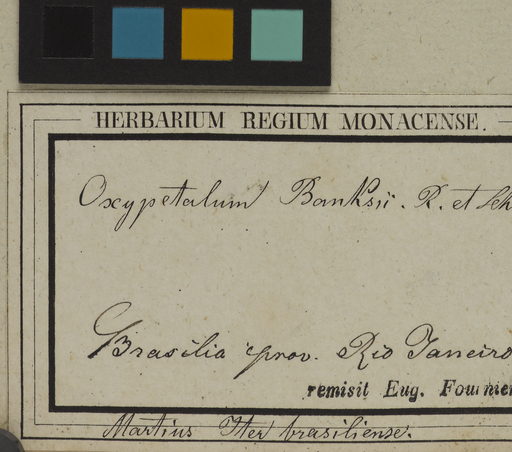 HERBARIUM REGIUM MONACENSE.
Oxypetalum Banksii. R. et Sch
Brasilia prov. Rio Janeiro
remisit Eug. Fournier
Martius Iter brasiliense.